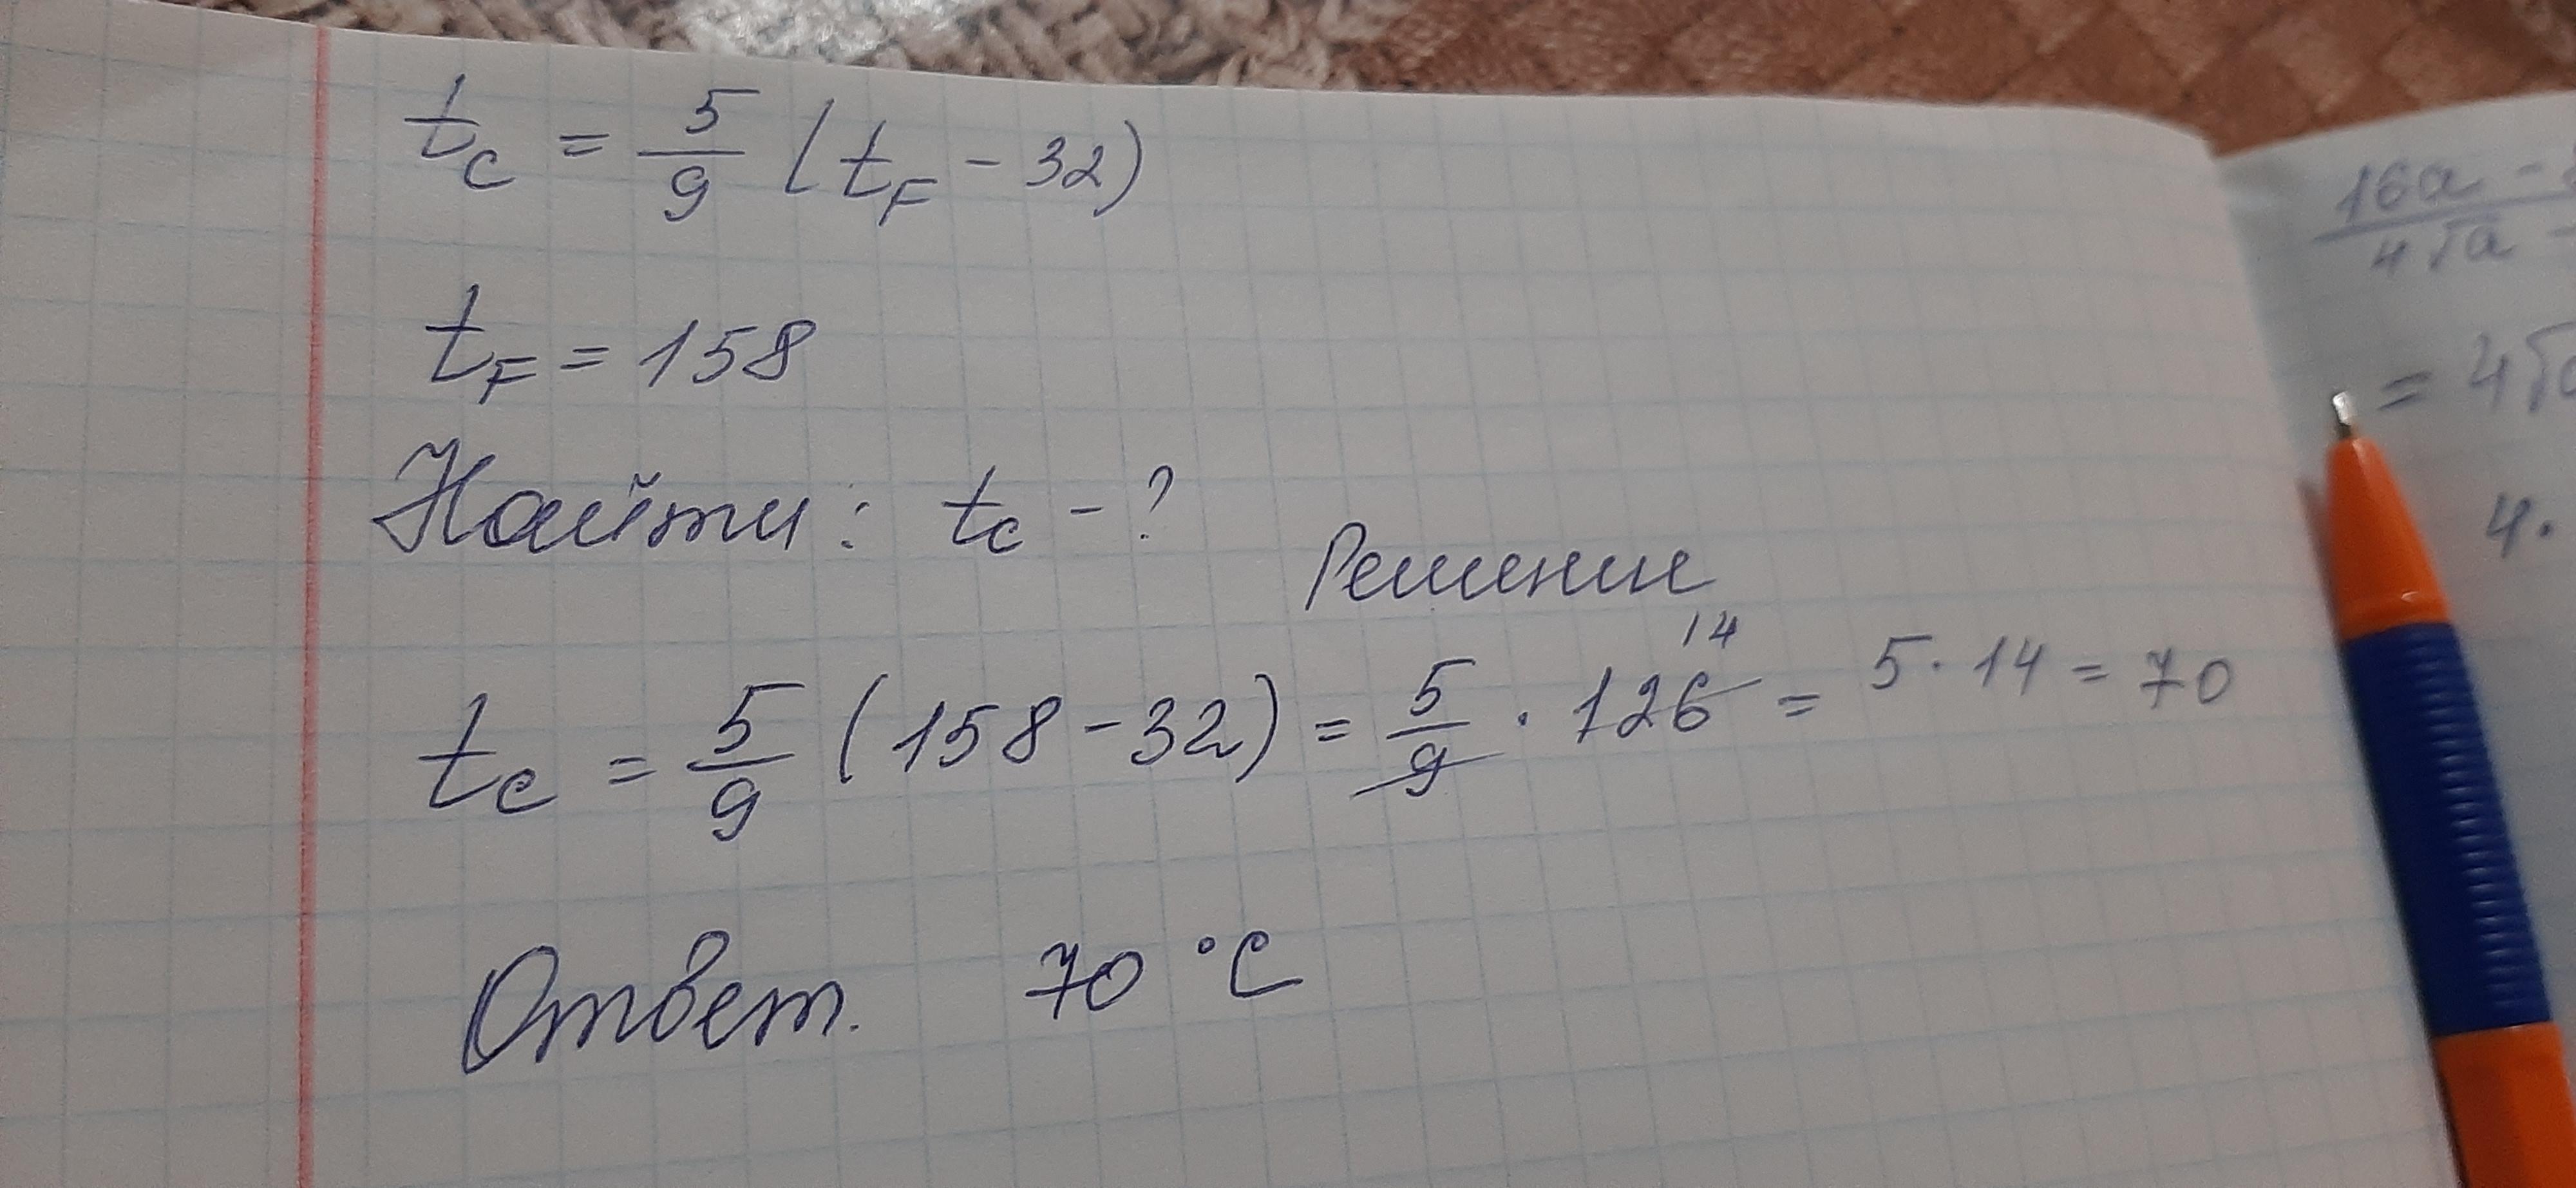 t_C = 5/9 (t_F - 32)
t_F = 158
Найти: t_C - ?
Решение
t_C = 5/9 (158 - 32) = 5/9 · 126 = 5 · 14 = 70
14
Ответ. 70 °C
16a -
4√a -
= 4√
4.